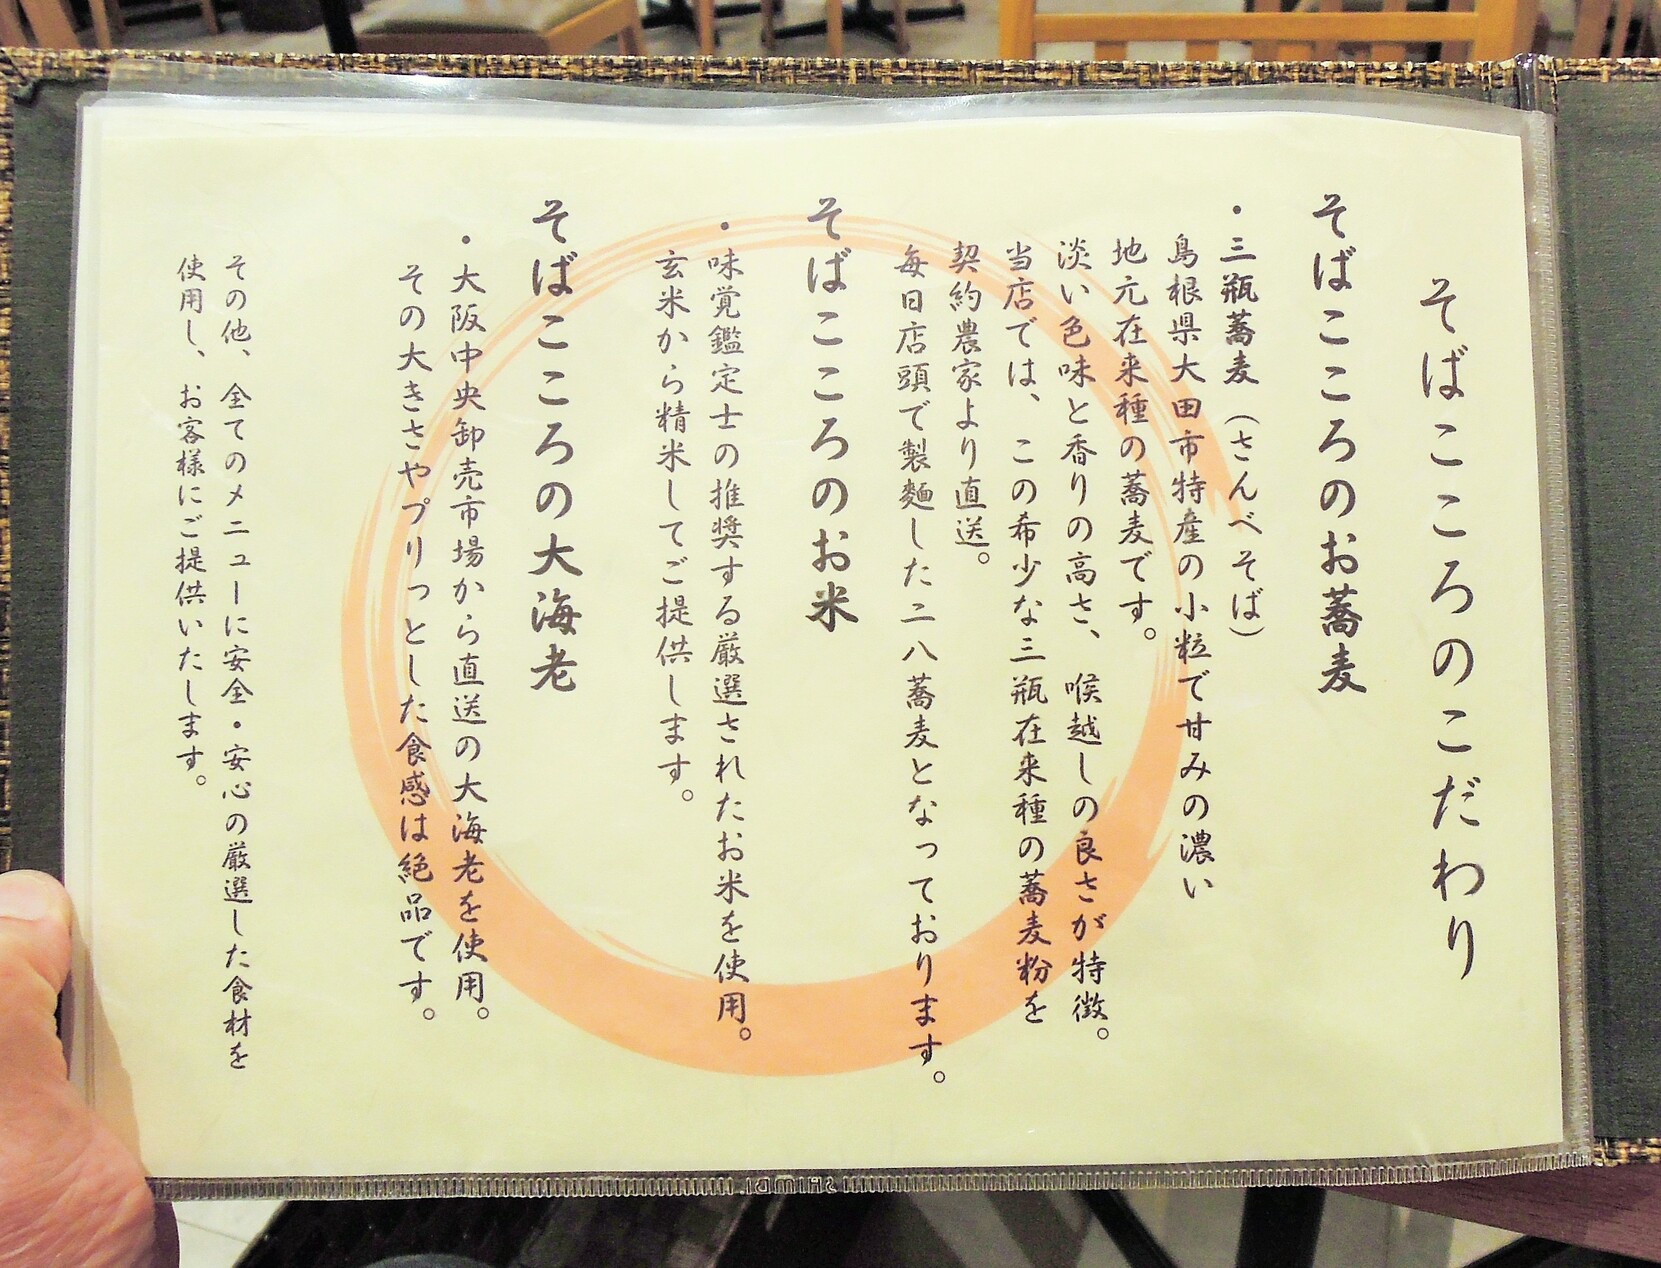 そばこころのこだわり
そばこころのお蕎麦
・三瓶蕎麦（さんべそば）
島根県大田市特産の小粒で甘みの濃い
地元在来種の蕎麦です。
淡い色味と香りの高さ、喉越しの良さが特徴。
当店では、この希少な三瓶在来種の蕎麦粉を
契約農家より直送。
毎日店頭で製麺した二八蕎麦となっております。
そばこころのお米
・味覚鑑定士の推奨する厳選されたお米を使用。
玄米から精米してご提供します。
そばこころの大海老
・大阪中央卸売市場から直送の大海老を使用。
その大きさやプリっとした食感は絶品です。
その他、全てのメニューに安全・安心の厳選した食材を
使用し、お客様にご提供いたします。